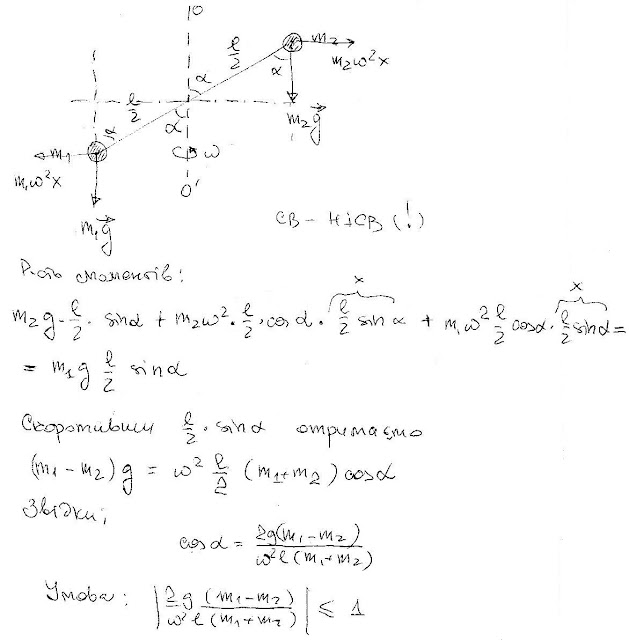 O
m₂
m₂ω²x
ℓ/2
α
α
m₂g⃗
ℓ/2
α
α
ω
m₁
m₁ω²x
O'
m₁g⃗
СВ – НІСВ (!)
Р-ть моментів:
x
x
m₂g · ℓ/2 · sinα + m₂ω² · ℓ/2 · cosα · ℓ/2 sinα + m₁ω² ℓ/2 cosα · ℓ/2 sinα =
= m₁g ℓ/2 sinα
Скоротивши ℓ/2 · sinα отримаємо
(m₁ – m₂)g = ω² ℓ/2 (m₁+m₂) cosα
Звідки;
cosα = 2g(m₁–m₂) / ω²ℓ(m₁+m₂)
Умова: |2g (m₁–m₂) / ω²ℓ(m₁+m₂)| ≤ 1